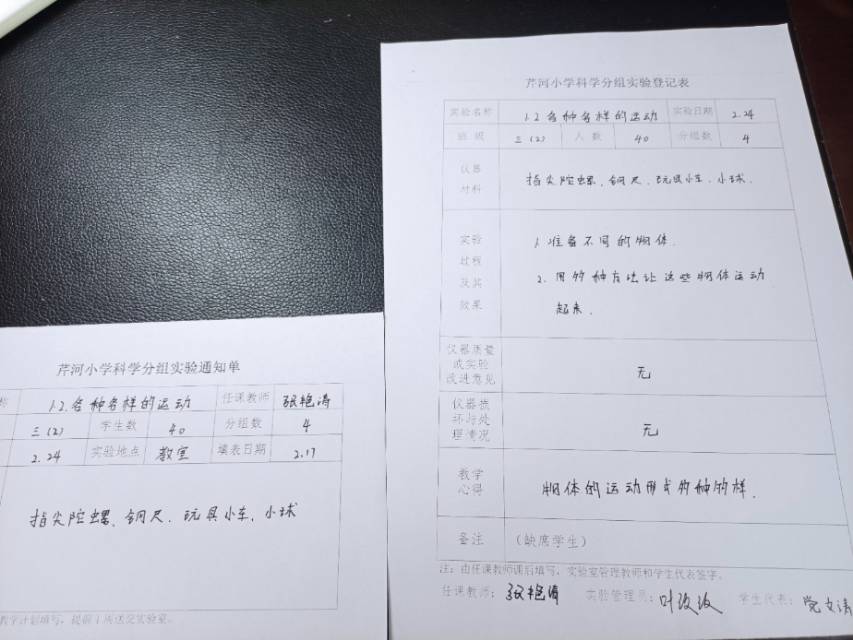 芹河小学科学分组实验通知单
称 1.2.各种各样的运动 任课教师 张艳涛
三(2) 学生数 40 分组数 4
2.24 实验地点 教室 填表日期 2.17
指尖陀螺、钢尺、玩具小车、小球
教学计划填写，提前1周送交实验室。
芹河小学科学分组实验登记表
实验名称 1.2各种各样的运动 实验日期 2.24
班级 三(2) 人数 40 分组数 4
仪器
材料
指尖陀螺、钢尺、玩具小车、小球.
实验
过程
及其
效果
1.准备不同的物体.
2.用各种方法让这些物体运动
起来.
仪器质量
或实验
改进意见
无
仪器损
坏与处
理情况
无
教学
心得
物体的运动形式多种多样.
备注 (缺席学生)
注：由任课教师课后填写，实验室管理教师和学生代表签字。
任课教师： 张艳涛 实验管理员： 学生代表：